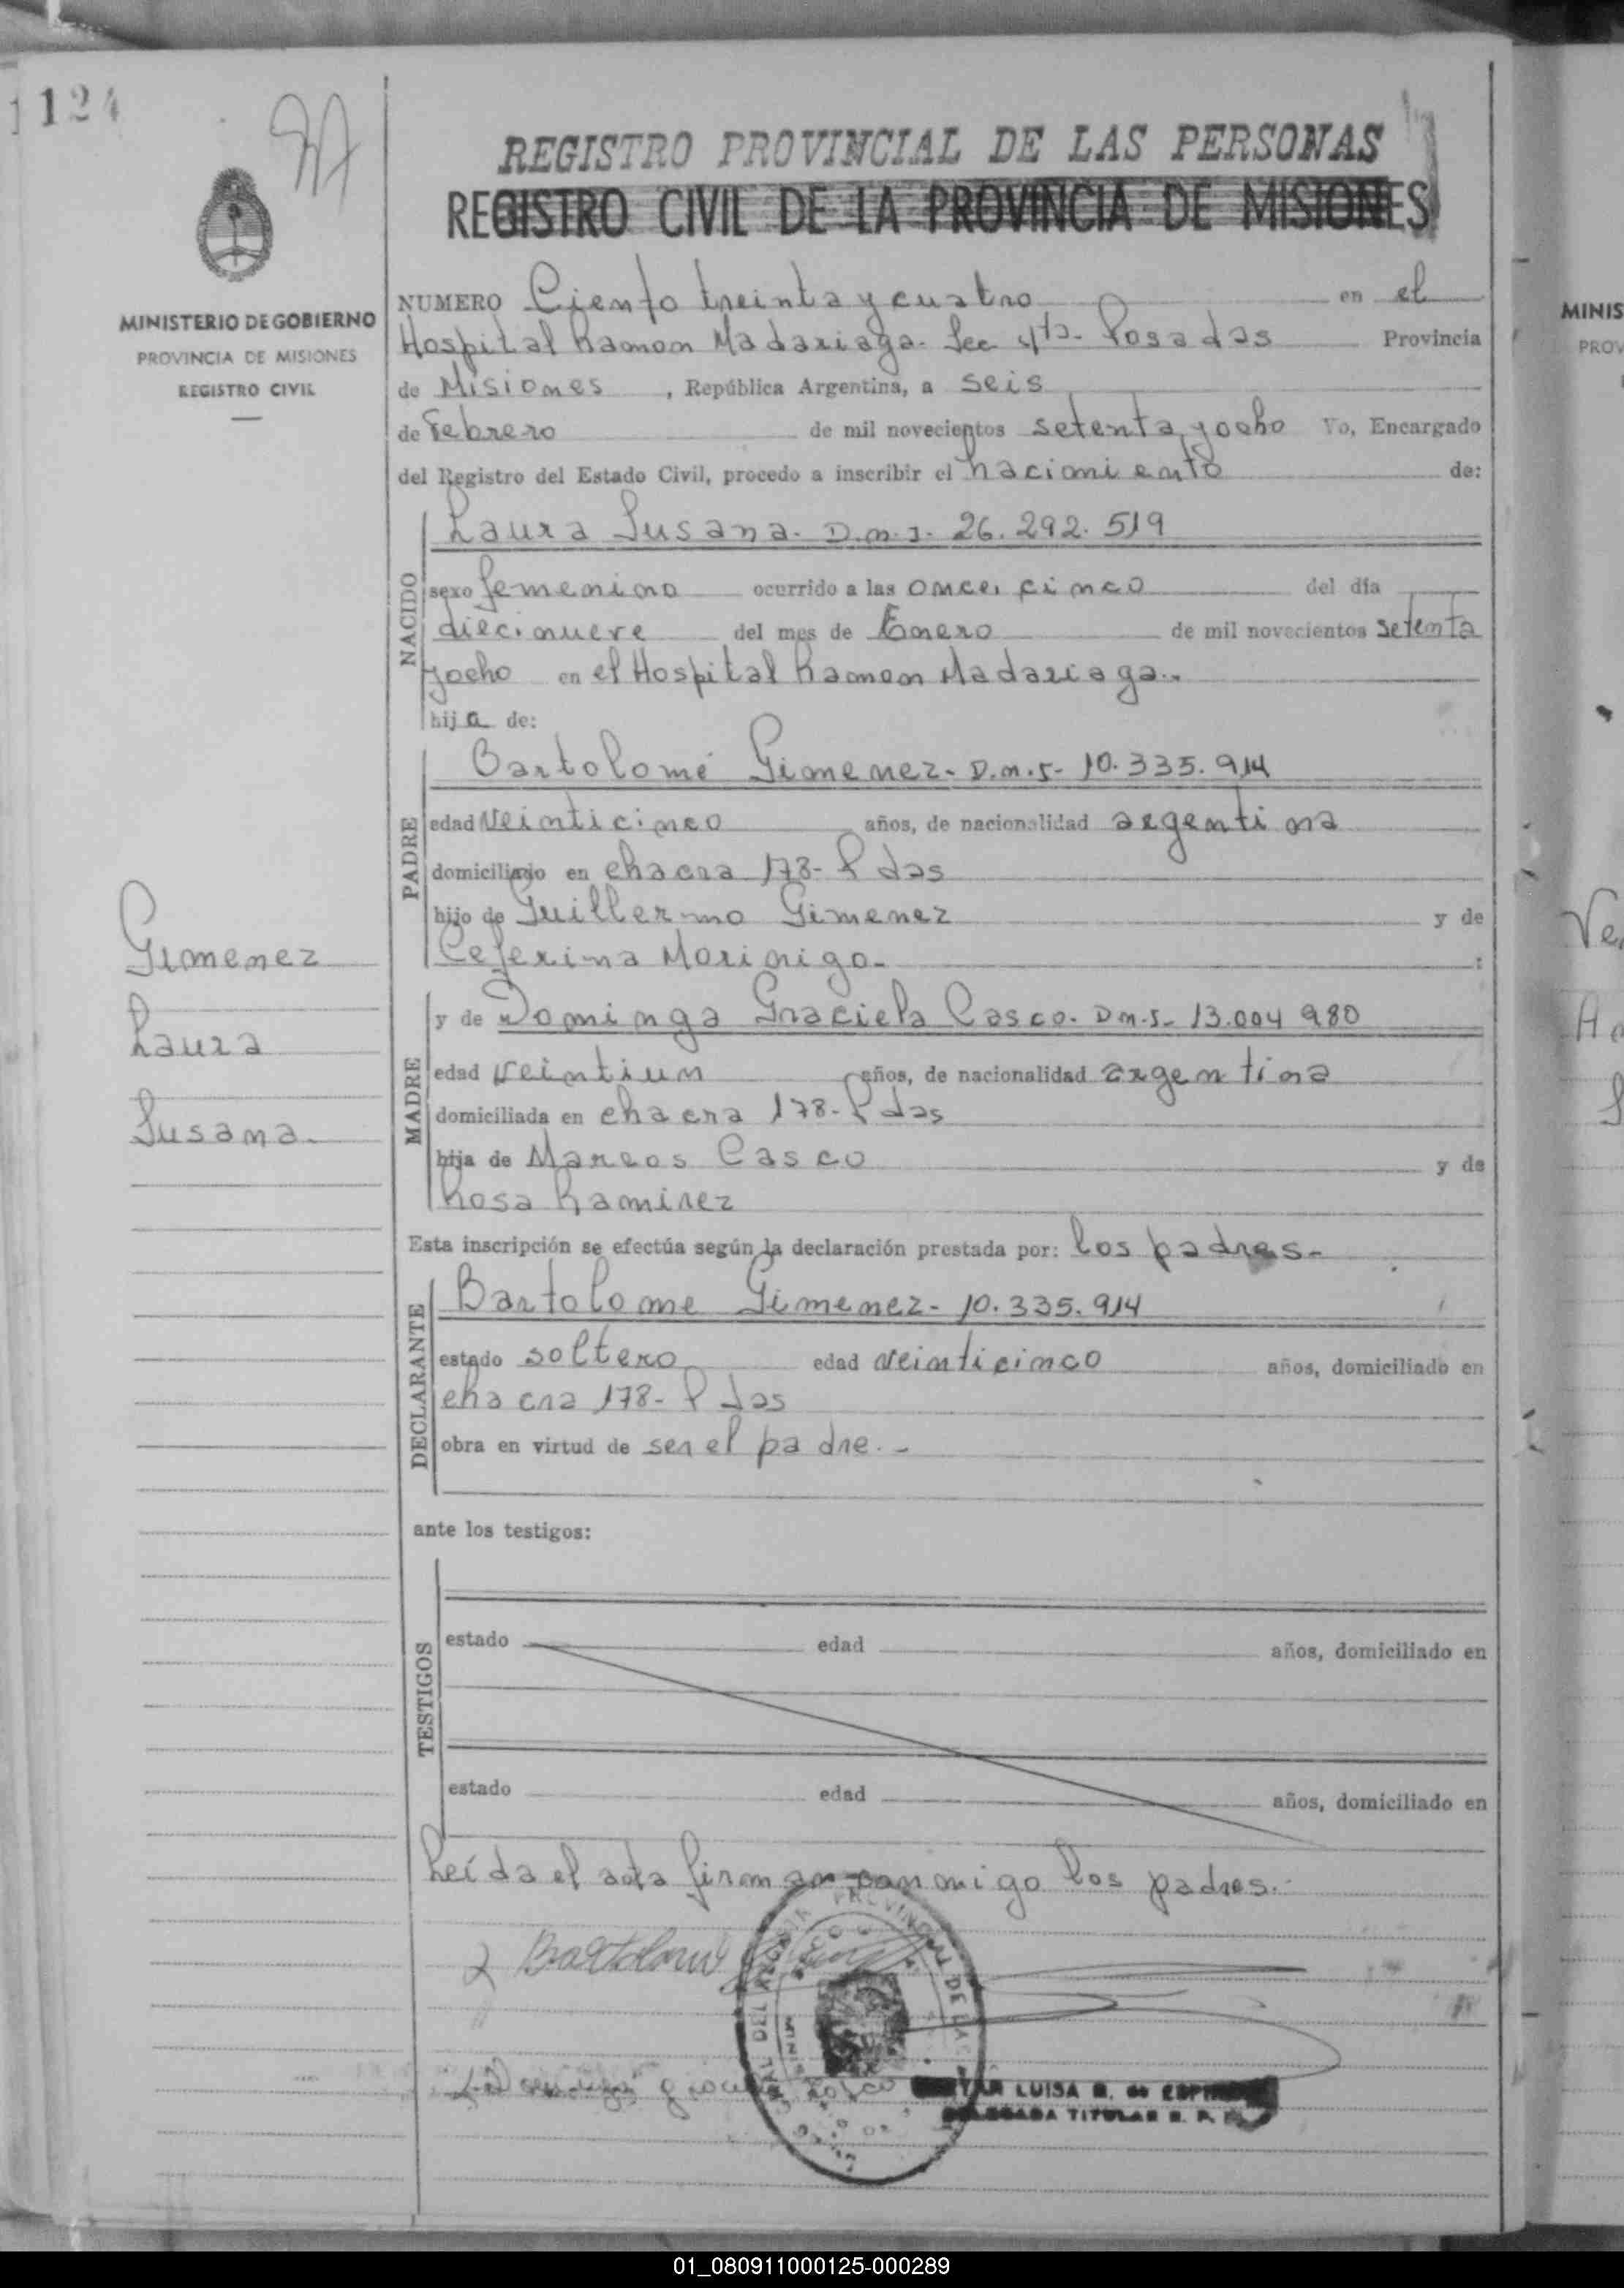 1124
REGISTRO PROVINCIAL DE LAS PERSONAS
REGISTRO CIVIL DE LA PROVINCIA DE MISIONES
MINISTERIO DE GOBIERNO
PROVINCIA DE MISIONES
REGISTRO CIVIL
NUMERO Ciento treinta y cuatro en el
Hospital Ramon Madariaga. Sec 4ta. Posadas Provincia
de Misiones, República Argentina, a seis
de Febrero de mil novecientos setenta y ocho Yo, Encargado
del Registro del Estado Civil, procedo a inscribir el nacimiento de:
NACIDO
Laura Susana. D.n.I. 26.292.519
sexo femenino ocurrido a las once, cinco del día
diecinueve del mes de Enero de mil novecientos setenta
y ocho en el Hospital Ramon Madariaga.
hija de:
PADRE
Bartolomé Gimenez. D.n.I- 10.335.914
edad veinticinco años, de nacionalidad argentina
domiciliado en chacra 178- Pdas
hijo de Guillermo Gimenez y de
Ceferina Morinigo.- :
MADRE
y de Dominga Graciela Casco. Dn.I- 13.004 980
edad veintiun años, de nacionalidad argentina
domiciliada en chacra 178- Pdas
hija de Marcos Casco y de
Rosa Ramirez
Gimenez
Laura
Susana.
Esta inscripción se efectúa según la declaración prestada por: los padres.-
DECLARANTE
Bartolome Gimenez- 10.335.914
estado soltero edad veinticinco años, domiciliado en
chacra 178- Pdas
obra en virtud de ser el padre.-
ante los testigos:
TESTIGOS
estado edad años, domiciliado en
estado edad años, domiciliado en
Leída el acta firman conmigo los padres.-
Bartolomé
LUISA
DELEGADA TITULAR R. P.
MINIS
PROV
01_080911000125-000289